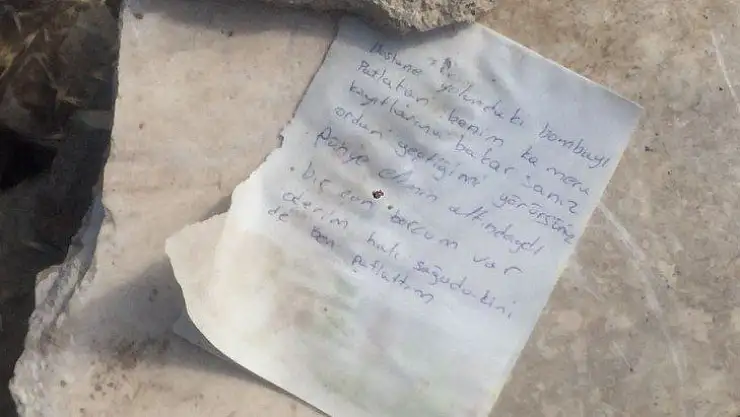 Hastane yolundaki bombayı
Patlatan benim kamera
kayıtlarına bakarsanız
ordan geçtiğimi görürsünüz
Fünye elimin altındaydı
bir can borcum var
öderim
de ben patlattım